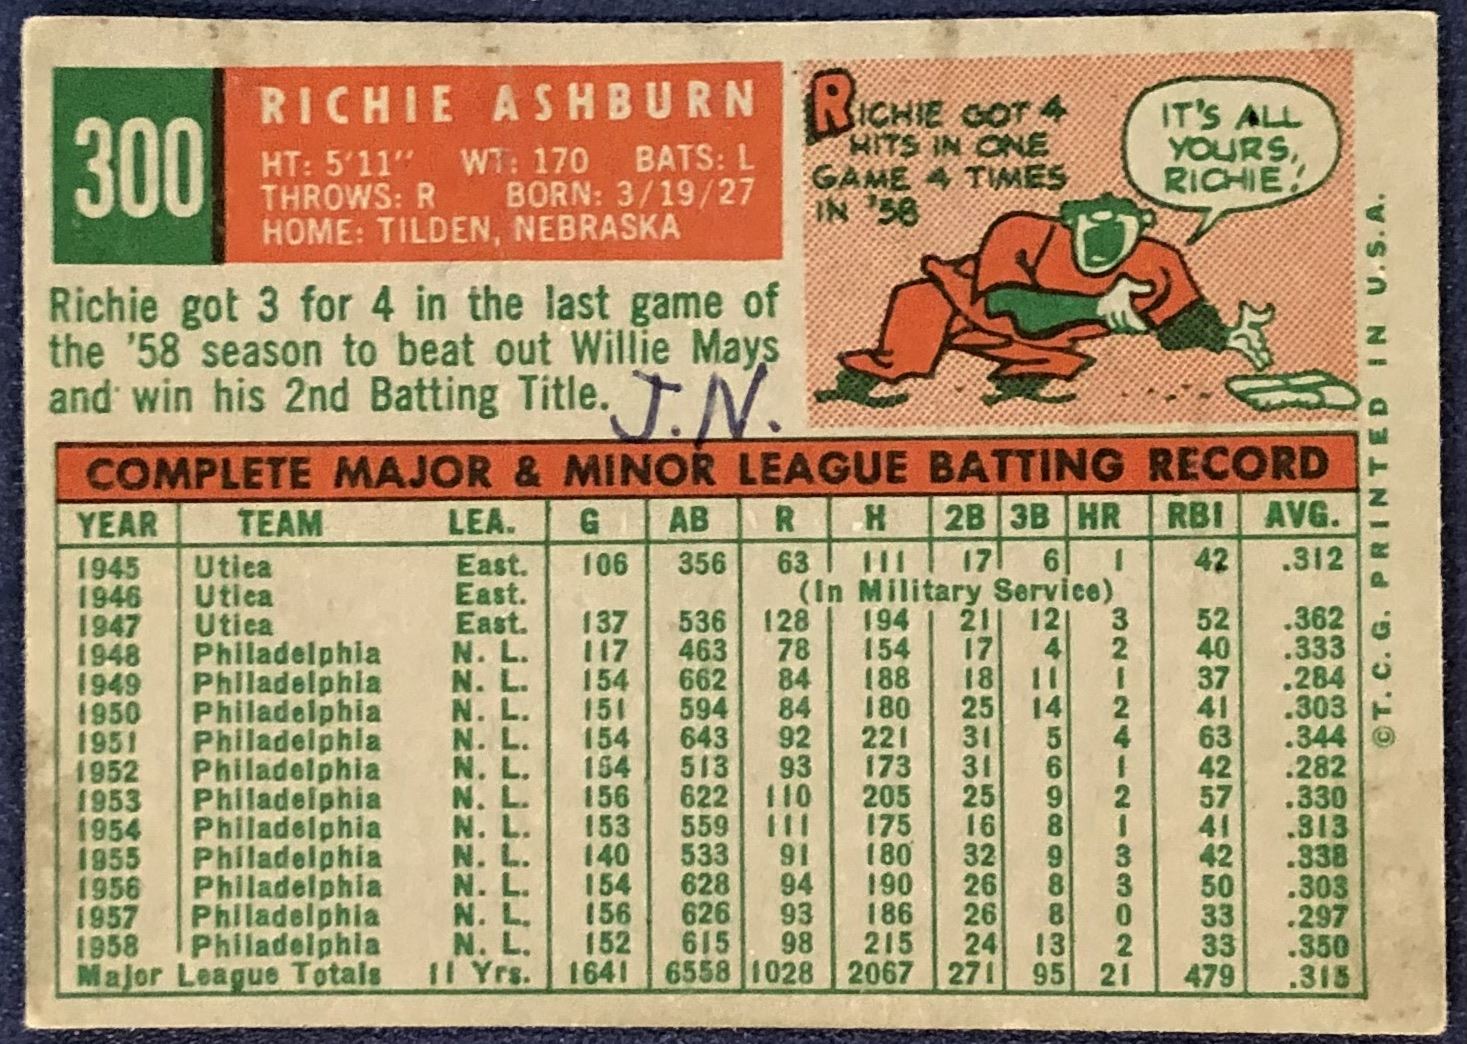 300
RICHIE ASHBURN
HT: 5'11" WT: 170 BATS: L
THROWS: R BORN: 3/19/27
HOME: TILDEN, NEBRASKA
Richie got 3 for 4 in the last game of
the '58 season to beat out Willie Mays
and win his 2nd Batting Title.
J.N.
RICHIE GOT 4
HITS IN ONE
GAME 4 TIMES
IN '58
IT'S ALL
YOURS,
RICHIE!
COMPLETE MAJOR & MINOR LEAGUE BATTING RECORD
YEAR TEAM LEA. G AB R H 2B 3B HR RBI AVG.
1945 Utica East. 106 356 63 111 17 6 1 42 .312
1946 Utica East. (In Military Service)
1947 Utica East. 137 536 128 194 21 12 3 52 .362
1948 Philadelphia N. L. 117 463 78 154 17 4 2 40 .333
1949 Philadelphia N. L. 154 662 84 188 18 11 1 37 .284
1950 Philadelphia N. L. 151 594 84 180 25 14 2 41 .303
1951 Philadelphia N. L. 154 643 92 221 31 5 4 63 .344
1952 Philadelphia N. L. 154 513 93 173 31 6 1 42 .282
1953 Philadelphia N. L. 156 622 110 205 25 9 2 57 .330
1954 Philadelphia N. L. 153 559 111 175 16 8 1 41 .313
1955 Philadelphia N. L. 140 533 91 180 32 9 3 42 .338
1956 Philadelphia N. L. 154 628 94 190 26 8 3 50 .303
1957 Philadelphia N. L. 156 626 93 186 26 8 0 33 .297
1958 Philadelphia N. L. 152 615 98 215 24 13 2 33 .350
Major League Totals 11 Yrs. 1641 6558 1028 2067 271 95 21 479 .315
©T.C.G. PRINTED IN U.S.A.